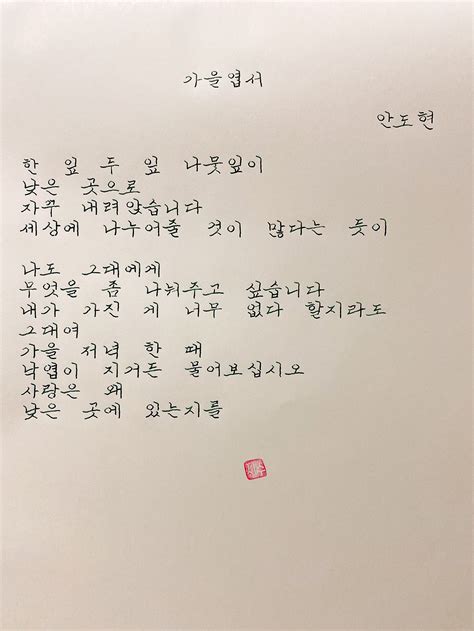 가을엽서
안도현
한 잎 두 잎 나뭇잎이
낮은 곳으로
자꾸 내려앉습니다
세상에 나누어줄 것이 많다는 듯이
나도 그대에게
무엇을 좀 나눠주고 싶습니다
내가 가진 게 너무 없다 할지라도
그대여
가을 저녁 한 때
낙엽이 지거든 물어보십시오
사랑은 왜
낮은 곳에 있는지를